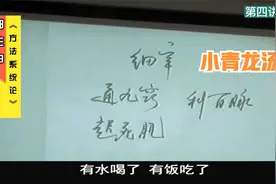 第四讲
小青龙汤
《方法系统论》
细辛
通九窍 利百脉
起死肌
有水喝了 有饭吃了